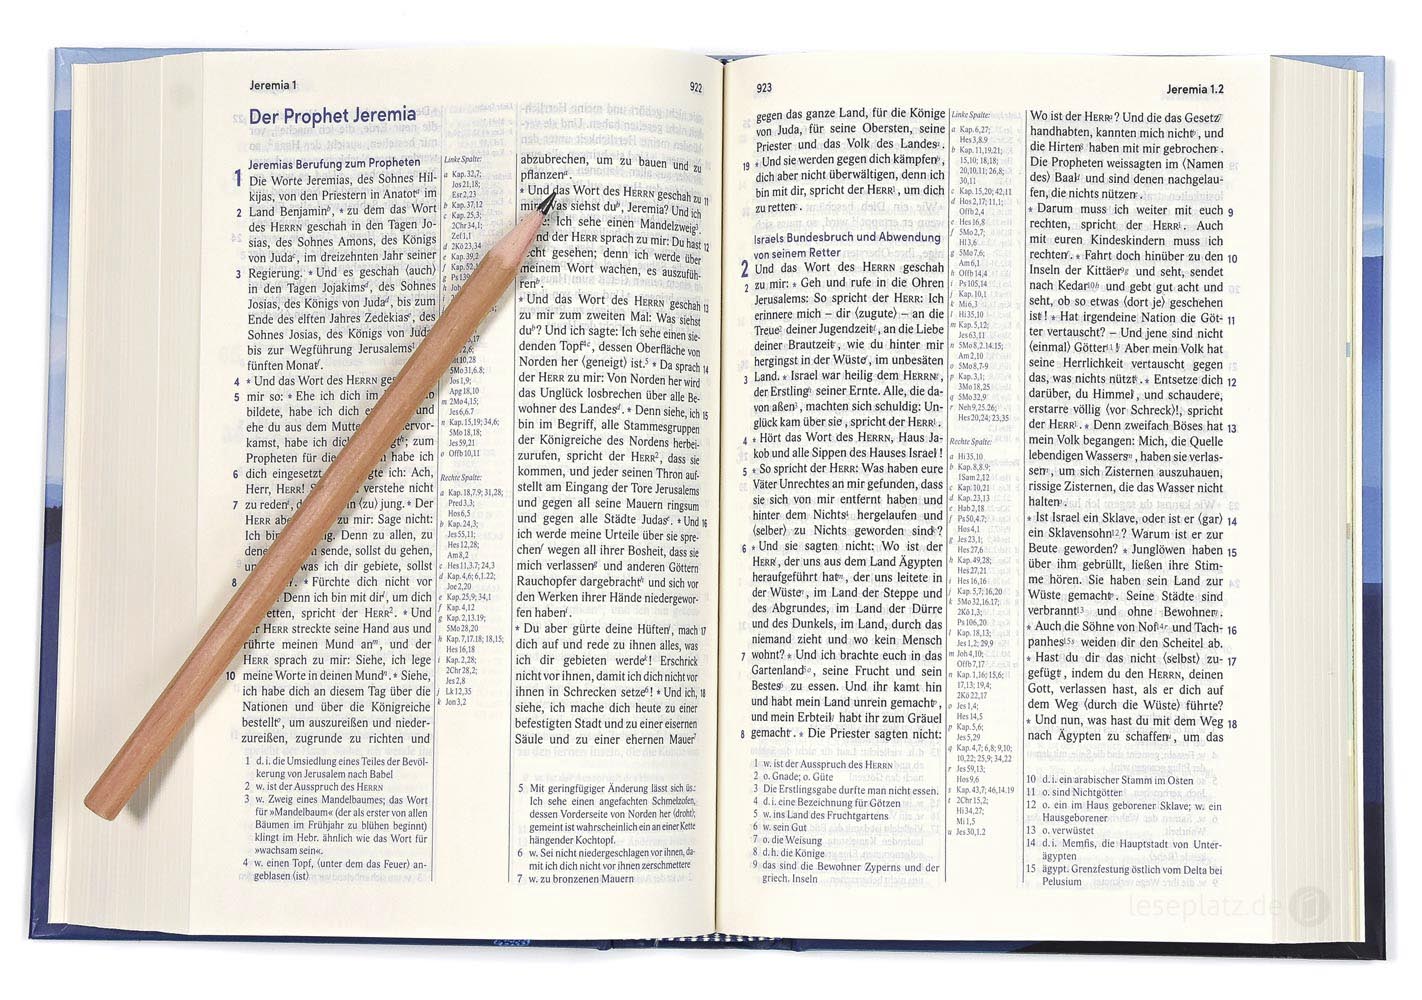 Jeremia 1
922
Der Prophet Jeremia
Jeremias Berufung zum Propheten
1 Die Worte Jeremias, des Sohnes Hil-
kijas, von den Priestern in Anatot im
2 Land Benjamin, * zu dem das Wort
des HERRN geschah in den Tagen Jo-
sias, des Sohnes Amons, des Königs
von Juda, im dreizehnten Jahr seiner
3 Regierung. * Und es geschah ⟨auch⟩
in den Tagen Jojakims, des Sohnes
Josias, des Königs von Juda, bis zum
Ende des elften Jahres Zedekias, des
Sohnes Josias, des Königs von Juda
bis zur Wegführung Jerusalems
fünften Monat.
4 * Und das Wort des HERRN
5 mir so: * Ehe ich dich im
bildete, habe ich dich und
ehe du aus dem
kamst, habe ich zum
Propheten für die habe ich
6 dich eingesetzt. ich: Ach,
Herr, HERR! verstehe nicht
7 zu reden, ⟨zu⟩ jung. * Der
HERR zu mir: Sage nicht:
Ich bin Denn zu allen, zu
sende, sollst du gehen,
was ich dir gebiete, sollst
8 * Fürchte dich nicht vor
Denn ich bin mit dir, um dich
spricht der HERR². * Und
HERR streckte seine Hand aus und
rührte meinen Mund an, und der
HERR sprach zu mir: Siehe, ich lege
10 meine Worte in deinen Mund. * Siehe,
ich habe dich an diesem Tag über die
Nationen und über die Königreiche
bestellt, um auszureißen und nieder-
zureißen, zugrunde zu richten und
1 d. i. die Umsiedlung eines Teiles der Bevöl-
kerung von Jerusalem nach Babel
2 w. ist der Ausspruch des HERRN
3 w. Zweig eines Mandelbaumes; das Wort
für »Mandelbaum« (der als erster von allen
Bäumen im Frühjahr zu blühen beginnt)
klingt im Hebr. ähnlich wie das Wort für
»wachsam sein«.
4 w. einen Topf, ⟨unter dem das Feuer⟩ an-
geblasen ⟨ist⟩
Linke Spalte:
a Kap. 32,7;
Jos 21,18;
Esr 2,23
b Kap. 37,12
c Kap. 25,3;
2Chr 34,1;
Zef 1,1
d 2Kö 23,34
e Kap. 39,2
5Mo 31,6.8;
Jos 1,9;
Apg 18,10
m 2Mo 4,15;
Jes 6,6.7
n Kap. 15,19; 34,6;
5Mo 18,18;
Jes 59,21
o Offb 10,11
Rechte Spalte:
a Kap. 18,7.9; 31,28;
Pred 3,3;
Hos 6,5
b Kap. 24,3;
Jes 55,11;
Hes 12,28;
Am 8,2
c Hes 11,3.7; 24,3
d Kap. 4,6; 6,1.22;
Joe 2,20
e Kap. 25,9; 34,1
f Kap. 4,12
g Kap. 2,13.19;
5Mo 28,20
h Kap. 7,17.18; 18,15;
Hes 16,18
i Kap. 2,28;
2Chr 28,2;
Jes 2,8
j Lk 12,35
k Jon 3,2
abzubrechen, um zu bauen und zu
pflanzen.
* Und das Wort des HERRN geschah zu 11
Was siehst du, Jeremia? Und ich
Ich sehe einen Mandelzweig³.
der HERR sprach zu mir: Du hast 12
gesehen; denn ich werde über
meinem Wort wachen, es auszufüh-
ren.
* Und das Wort des HERRN geschah 13
zu mir zum zweiten Mal: Was siehst
du? Und ich sagte: Ich sehe einen sie-
denden Topf⁴, dessen Oberfläche von
Norden her ⟨geneigt⟩ ist.⁵ * Da sprach 14
der HERR zu mir: Von Norden her wird
das Unglück losbrechen über alle Be-
wohner des Landes. * Denn siehe, ich 15
bin im Begriff, alle Stammesgruppen
der Königreiche des Nordens herbei-
zurufen, spricht der HERR², dass sie
kommen, und jeder seinen Thron auf-
stellt am Eingang der Tore Jerusalems
und gegen all seine Mauern ringsum
und gegen alle Städte Judas. * Und 16
ich werde meine Urteile über sie spre-
chen wegen all ihrer Bosheit, dass sie
mich verlassen und anderen Göttern
Rauchopfer dargebracht und sich vor
den Werken ihrer Hände niedergewor-
fen haben.
* Du aber gürte deine Hüften, mach 17
dich auf und rede zu ihnen alles, was
ich dir gebieten werde! Erschrick
nicht vor ihnen, damit ich dich nicht vor
ihnen in Schrecken setze⁶! * Und ich, 18
siehe, ich mache dich heute zu einer
befestigten Stadt und zu einer eisernen
Säule und zu einer ehernen Mauer⁷
5 Mit geringfügiger Änderung lässt sich üs.:
Ich sehe einen angefachten Schmelzofen,
dessen Vorderseite von Norden her ⟨droht⟩;
gemeint ist wahrscheinlich ein an einer Kette
hängender Kochtopf.
6 w. Sei nicht niedergeschlagen vor ihnen, da-
mit ich dich nicht vor ihnen zerschmettere
7 w. zu bronzenen Mauern
923
Jeremia 1.2
gegen das ganze Land, für die Könige
von Juda, für seine Obersten, seine
Priester und das Volk des Landes.
19 * Und sie werden gegen dich kämpfen,
dich aber nicht überwältigen, denn ich
bin mit dir, spricht der HERR¹, um dich
zu retten.
Israels Bundesbruch und Abwendung
von seinem Retter
2 Und das Wort des HERRN geschah
2 zu mir: * Geh und rufe in die Ohren
Jerusalems: So spricht der HERR: Ich
erinnere mich – dir ⟨zugute⟩ – an die
Treue² deiner Jugendzeit, an die Liebe
deiner Brautzeit, wie du hinter mir
hergingst in der Wüste, im unbesäten
3 Land. * Israel war heilig dem HERRN,
der Erstling seiner Ernte. Alle, die da-
von aßen³, machten sich schuldig: Un-
glück kam über sie, spricht der HERR¹.
4 * Hört das Wort des HERRN, Haus Ja-
kob und alle Sippen des Hauses Israel!
5 * So spricht der HERR: Was haben eure
Väter Unrechtes an mir gefunden, dass
sie sich von mir entfernt haben und
hinter dem Nichts⁴ hergelaufen und
⟨selber⟩ zu Nichts geworden sind?
6 * Und sie sagten nicht: Wo ist der
HERR, der uns aus dem Land Ägypten
heraufgeführt hat, der uns leitete in
der Wüste, im Land der Steppe und
des Abgrundes, im Land der Dürre
und des Dunkels, im Land, durch das
niemand zieht und wo kein Mensch
7 wohnt? * Und ich brachte euch in das
Gartenland⁵, seine Frucht und sein
Bestes zu essen. Und ihr kamt hin
und habt mein Land unrein gemacht,
und mein Erbteil habt ihr zum Gräuel
8 gemacht. * Die Priester sagten nicht:
1 w. ist der Ausspruch des HERRN
2 o. Gnade; o. Güte
3 Die Erstlingsgabe durfte man nicht essen.
4 d. i. eine Bezeichnung für Götzen
5 w. ins Land des Fruchtgartens
6 w. sein Gut
7 o. die Weisung
8 d. h. die Könige
9 das sind die Bewohner Zyperns und der
griech. Inseln
Linke Spalte:
a Kap. 6,27;
Hes 3,8.9
b Kap. 11,19.21;
15,10; 18,18;
20,10.11; 26,8;
30,11
c Kap. 15,20; 42,11
d Hos 2,17; 11,1;
Offb 2,4
e Hes 16,8
f 5Mo 2,7;
Hl 3,6
g 5Mo 7,6;
Am 6,1
h Offb 14,4
i Ps 105,14
j Kap. 10,1
k Mi 6,3
l Hi 35,10
m Kap. 5,12;
Jes 63,11
n 5Mo 8,2.14.15;
Am 2,10
o 5Mo 8,7-9
p Kap. 3,1;
3Mo 18,25
q 5Mo 32,9
r Neh 9,25.26;
Hes 20,24; 23,35
Rechte Spalte:
a Hi 35,10
b Kap. 8,8.9;
1Sam 2,12
c Kap. 10,21
d Kap. 23,13
e Hab 2,18
f Ps 50,4.7;
Hos 4,1
g Jes 23,1;
Hes 27,6
h Kap. 49,28;
Hes 27,21
i Hes 16,16
j Kap. 5,7; 16,20
k 5Mo 32,16.17;
2Kö 1,3;
Ps 106,20
l Kap. 18,13;
Jes 1,2; 29,9
m Joh 4,10;
Offb 7,17
n Kap. 1,16; 15,6;
17,13; 19,4;
2Kö 22,17
o Jes 1,4;
Hos 14,5
p Kap. 5,6;
Jes 5,29
q Kap. 4,7; 6,8; 9,10;
10,22; 25,9; 34,22
r Jes 59,13;
Hos 9,6
s Kap. 43,7; 46,14.19
t 2Chr 15,2;
Hi 34,27;
Mi 1,5
u Jes 30,1.2
Wo ist der HERR? Und die das Gesetz⁷
handhabten, kannten mich nicht, und
die Hirten⁸ haben mit mir gebrochen.
Die Propheten weissagten im ⟨Namen
des⟩ Baal und sind denen nachgelau-
fen, die nichts nützen.
* Darum muss ich weiter mit euch 9
rechten, spricht der HERR¹. Auch
mit euren Kindeskindern muss ich
rechten. * Fahrt doch hinüber zu den 10
Inseln der Kittäer⁹ und seht, sendet
nach Kedar¹⁰ und gebt gut acht und
seht, ob so etwas ⟨dort je⟩ geschehen
ist! * Hat irgendeine Nation die Göt- 11
ter vertauscht? – Und jene sind nicht
⟨einmal⟩ Götter¹¹! Aber mein Volk hat
seine Herrlichkeit vertauscht gegen
das, was nichts nützt. * Entsetze dich 12
darüber, du Himmel, und schaudere,
erstarre völlig ⟨vor Schreck⟩!, spricht
der HERR¹. * Denn zweifach Böses hat 13
mein Volk begangen: Mich, die Quelle
lebendigen Wassers, haben sie verlas-
sen, um sich Zisternen auszuhauen,
rissige Zisternen, die das Wasser nicht
halten.
* Ist Israel ein Sklave, oder ist er ⟨gar⟩ 14
ein Sklavensohn¹²? Warum ist er zur
Beute geworden? * Junglöwen haben 15
über ihm gebrüllt, ließen ihre Stim-
me hören. Sie haben sein Land zur
Wüste gemacht. Seine Städte sind
verbrannt¹³ und ohne Bewohner.
* Auch die Söhne von Nof¹⁴ und Tach- 16
panhes¹⁵ weiden dir den Scheitel ab.
* Hast du dir das nicht ⟨selbst⟩ zu- 17
gefügt, indem du den HERRN, deinen
Gott, verlassen hast, als er dich auf
dem Weg ⟨durch die Wüste⟩ führte?
* Und nun, was hast du mit dem Weg 18
nach Ägypten zu schaffen, um das
10 d. i. ein arabischer Stamm im Osten
11 o. sind Nichtgötter
12 o. ein im Haus geborener Sklave; w. ein
Hausgeborener
13 o. verwüstet
14 d. i. Memfis, die Hauptstadt von Unter-
ägypten
15 ägypt. Grenzfestung östlich vom Delta bei
Pelusium
leseplatz.de